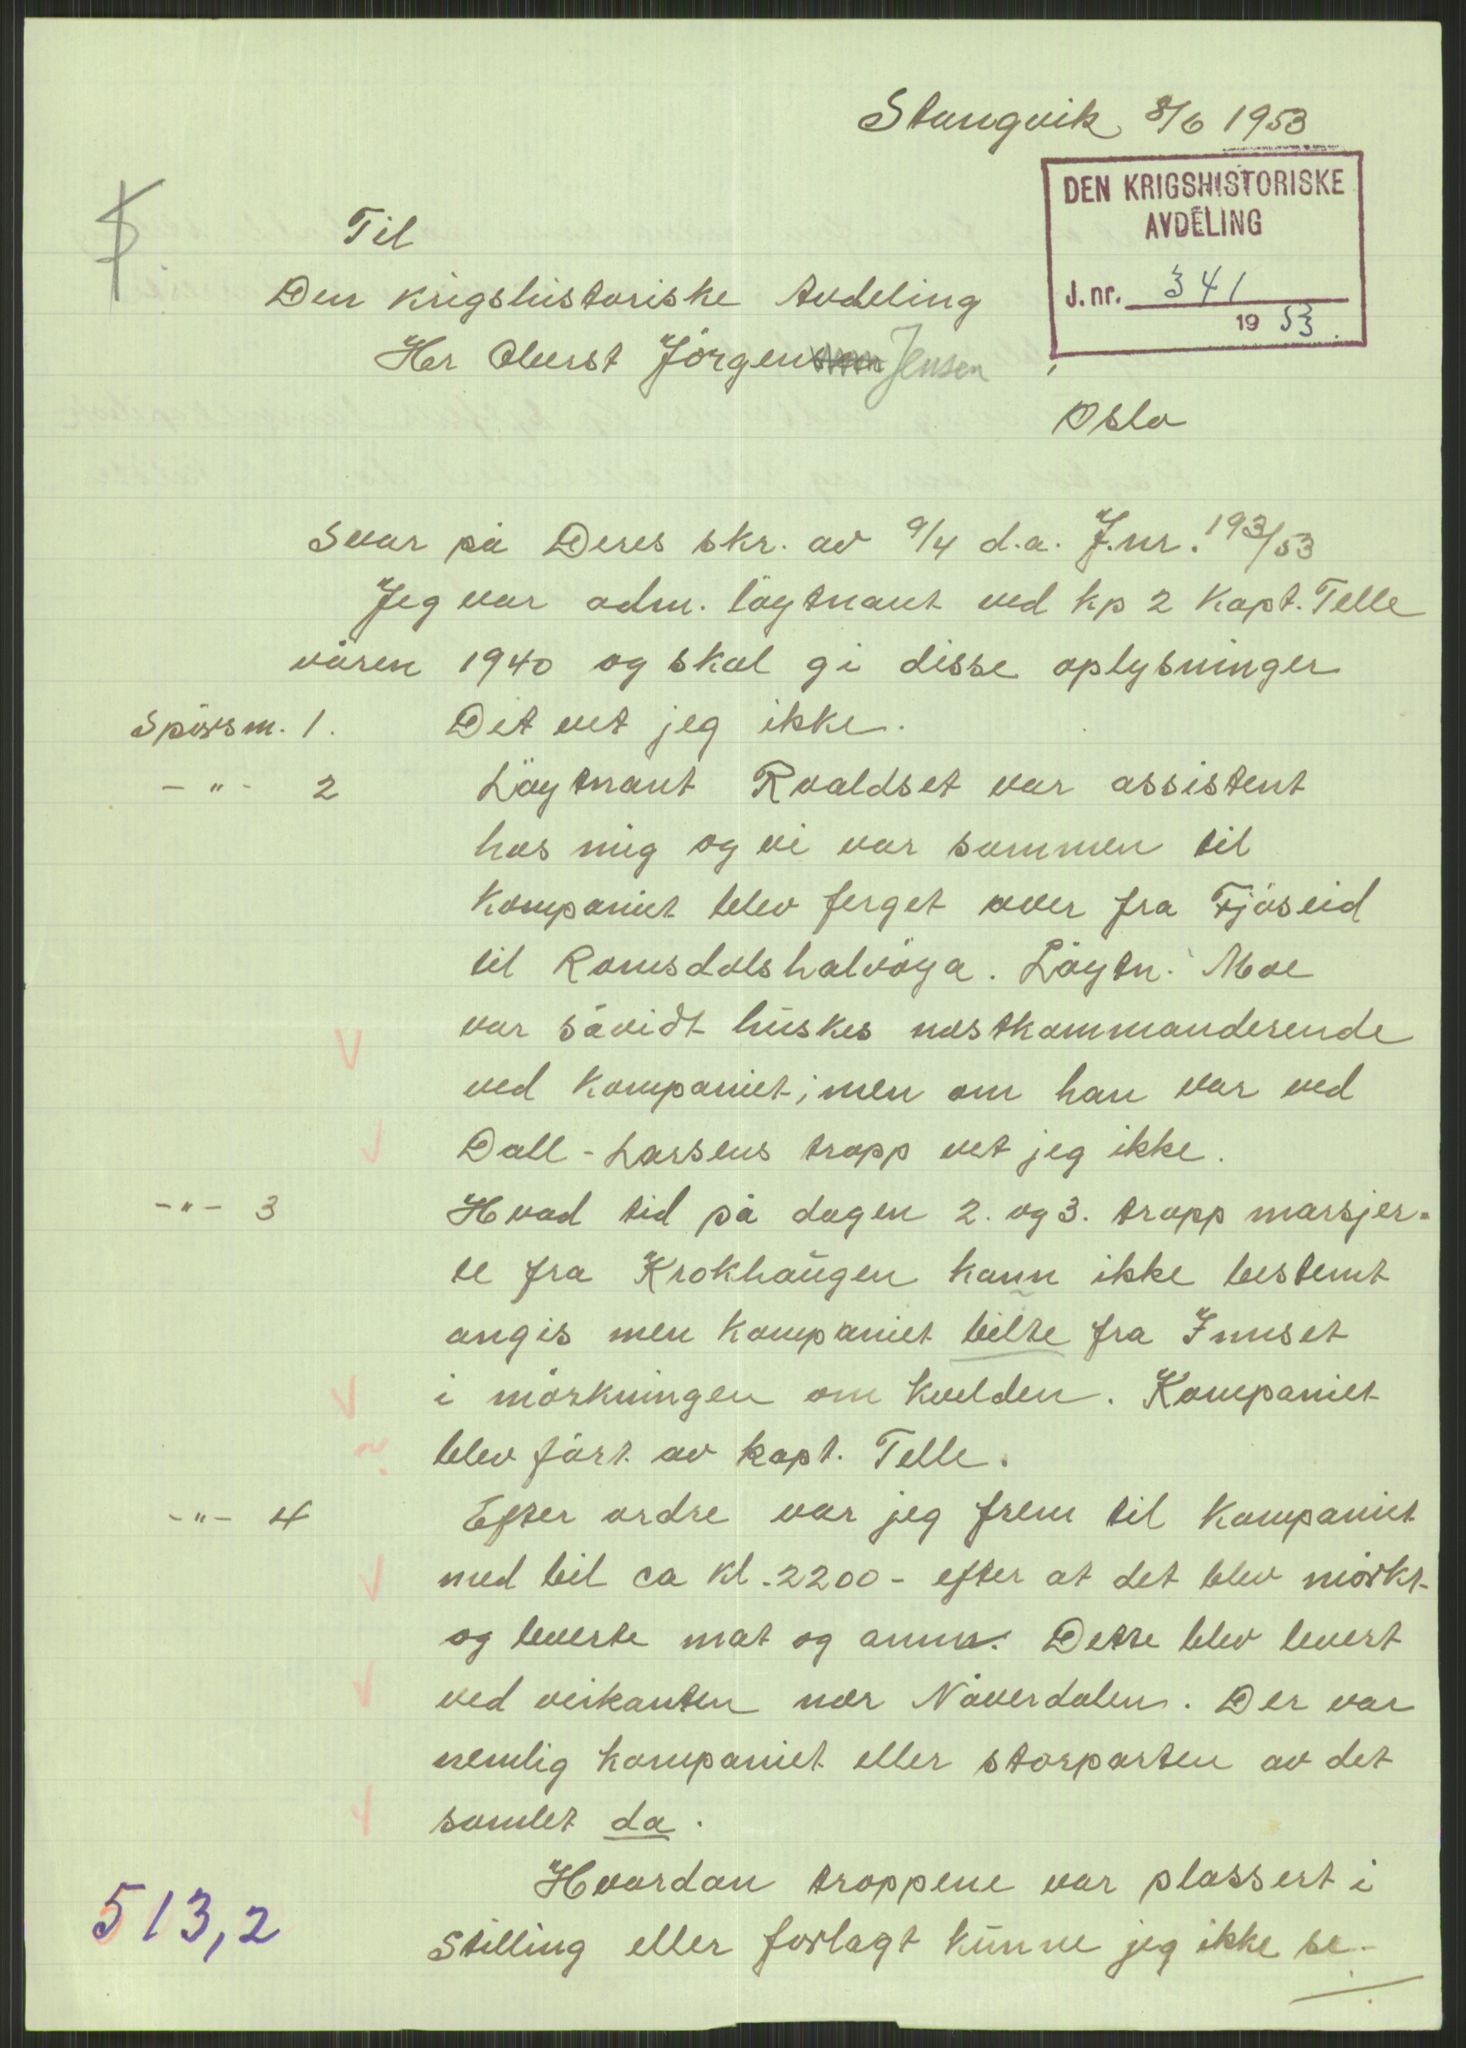 Stangvik 8/6 1953
DEN KRIGSHISTORISKE
AVDELING
J.nr. 341
1953.
Til
Den krigshistoriske Avdeling
Her Oberst Jörgen Jensen
Oslo
Svar på Deres skr. av 9/4 d.a. J.nr. 193/53
Jeg var adm. löytnant ved kp 2 Kapt. Telle
våren 1940 og skal gi disse oplysninger
Spörsm. 1. Det vet jeg ikke.
- " - 2 Löytnant Rvaldset var assistent
hos mig og vi var sammen til
Kompaniet blev ferget over fra Fjöseid
til Romsdalshalvöya. Löytn. Moe
var såvidt huskes nestkommanderende
ved Kompaniet; men om han var ved
Dall-Larsens tropp vet jeg ikke.
- " - 3 Hvad tid på dagen 2. og 3. tropp marsjer-
te fra Krokhaugen kann ikke bestemt
angis men Kompaniet bilte fra Innset
i mörkningen om kvelden. Kompaniet
blev fört av kapt. Telle.
- " - 4 Efter ordre var jeg frem til Kompaniet
med bil ca kl. 2200 - efter at det blev mörkt -
og leverte mat og amm. Dette blev levert
ved veikanten nær Nåverdalen. Der var
nemlig kompaniet eller storparten av det
samlet da.
Hvordan troppene var plassert i
stilling eller forlagt kunne jeg ikke se -
513,2